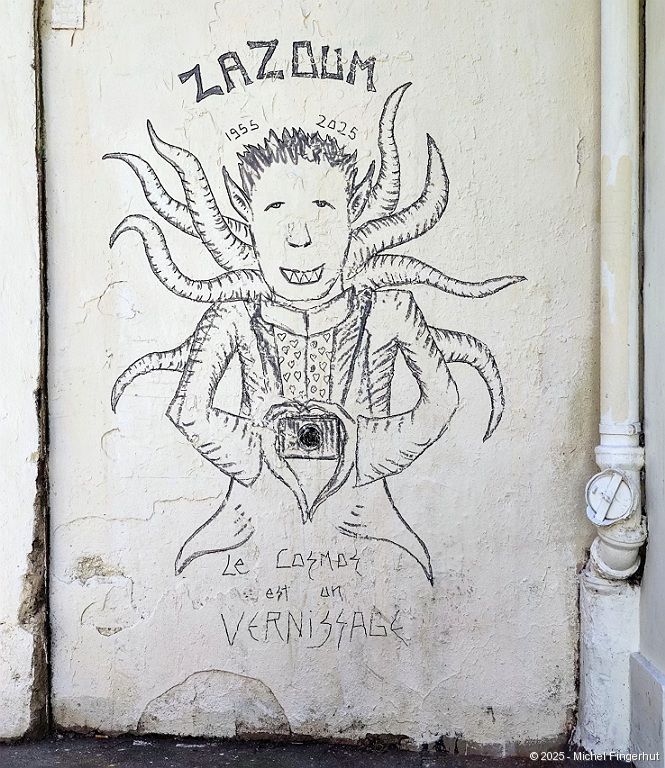 ZAZOUM
1955 2025
Le COSMOS
est un
VERNISSAGE
© 2025 - Michel Fingerhut